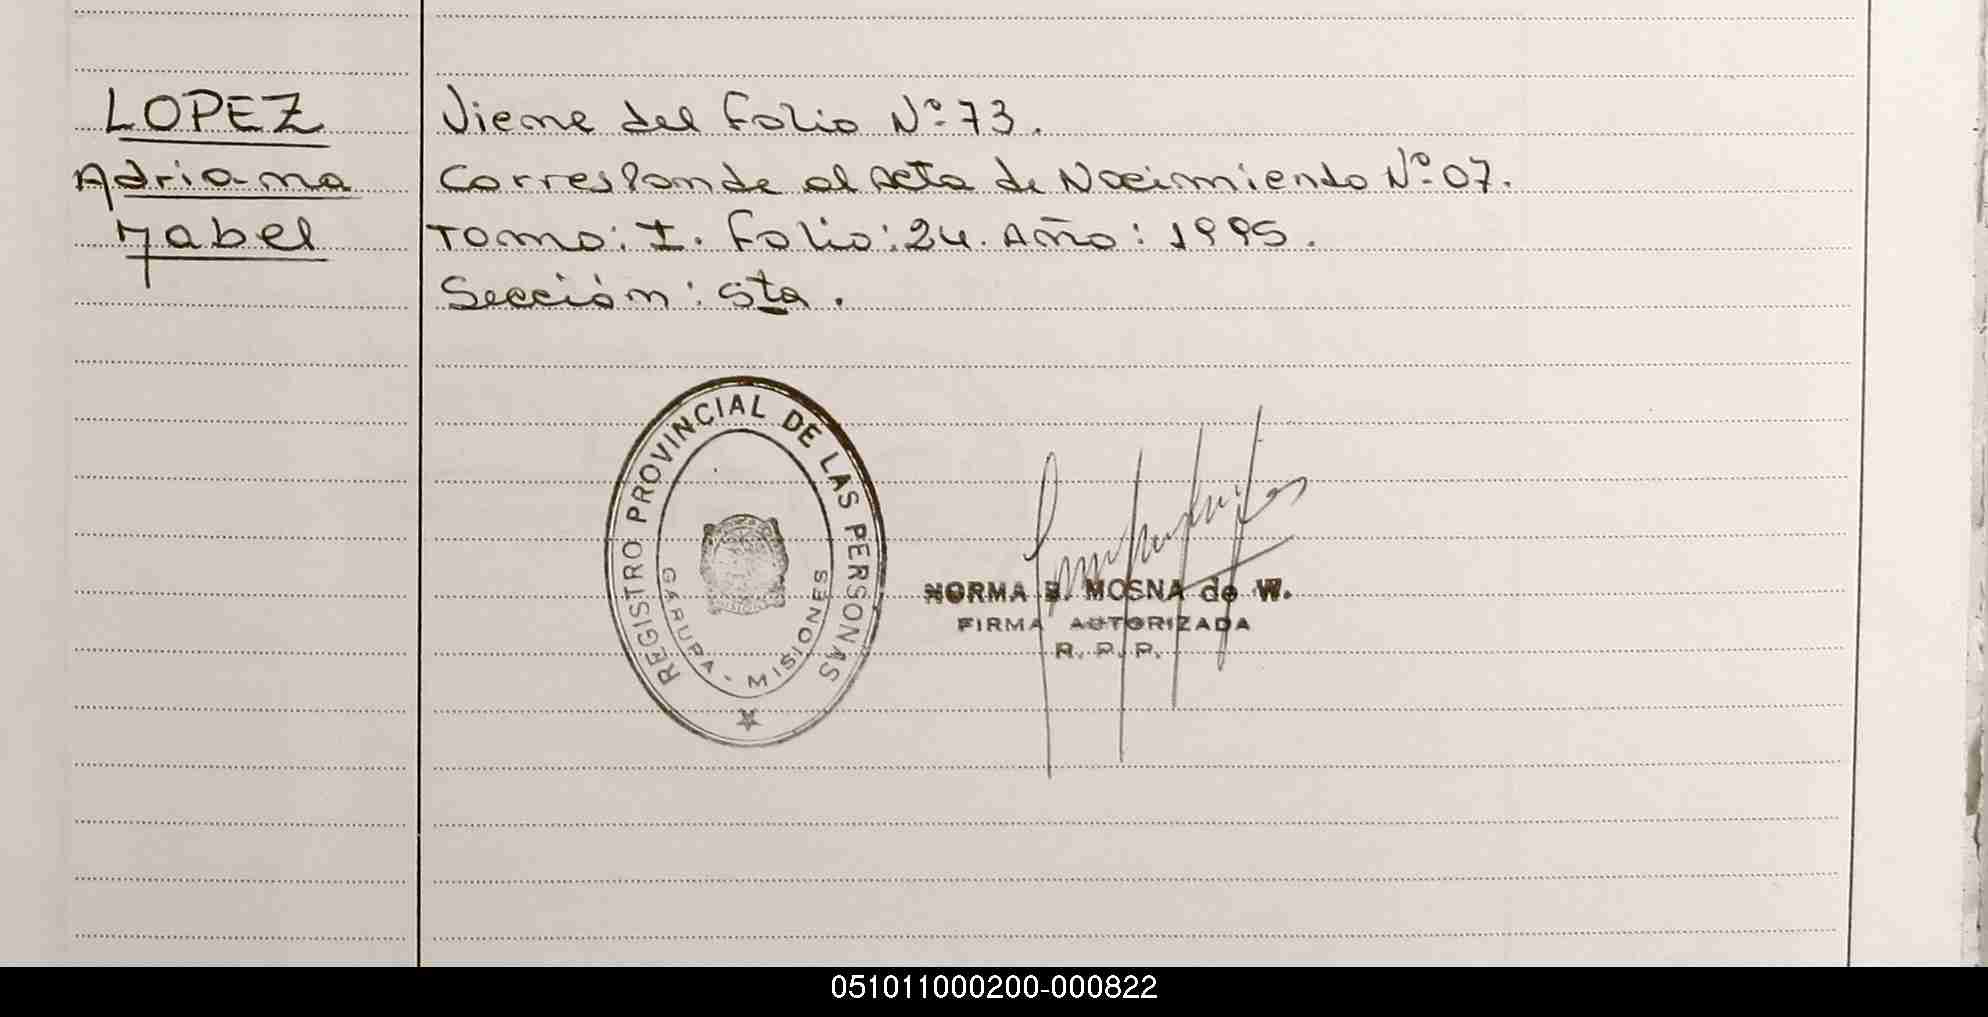 LOPEZ
Adriana
Mabel
Viene del Folio Nº 73.
Corresponde al acta de Nacimiento Nº 07.
Tomo: I. Folio: 24. Año: 1995.
Sección: 5ta.
REGISTRO PROVINCIAL DE LAS PERSONAS
GARUPA - MISIONES
NORMA B. MOSNA de W.
FIRMA AUTORIZADA
R. P. P.
051011000200-000822